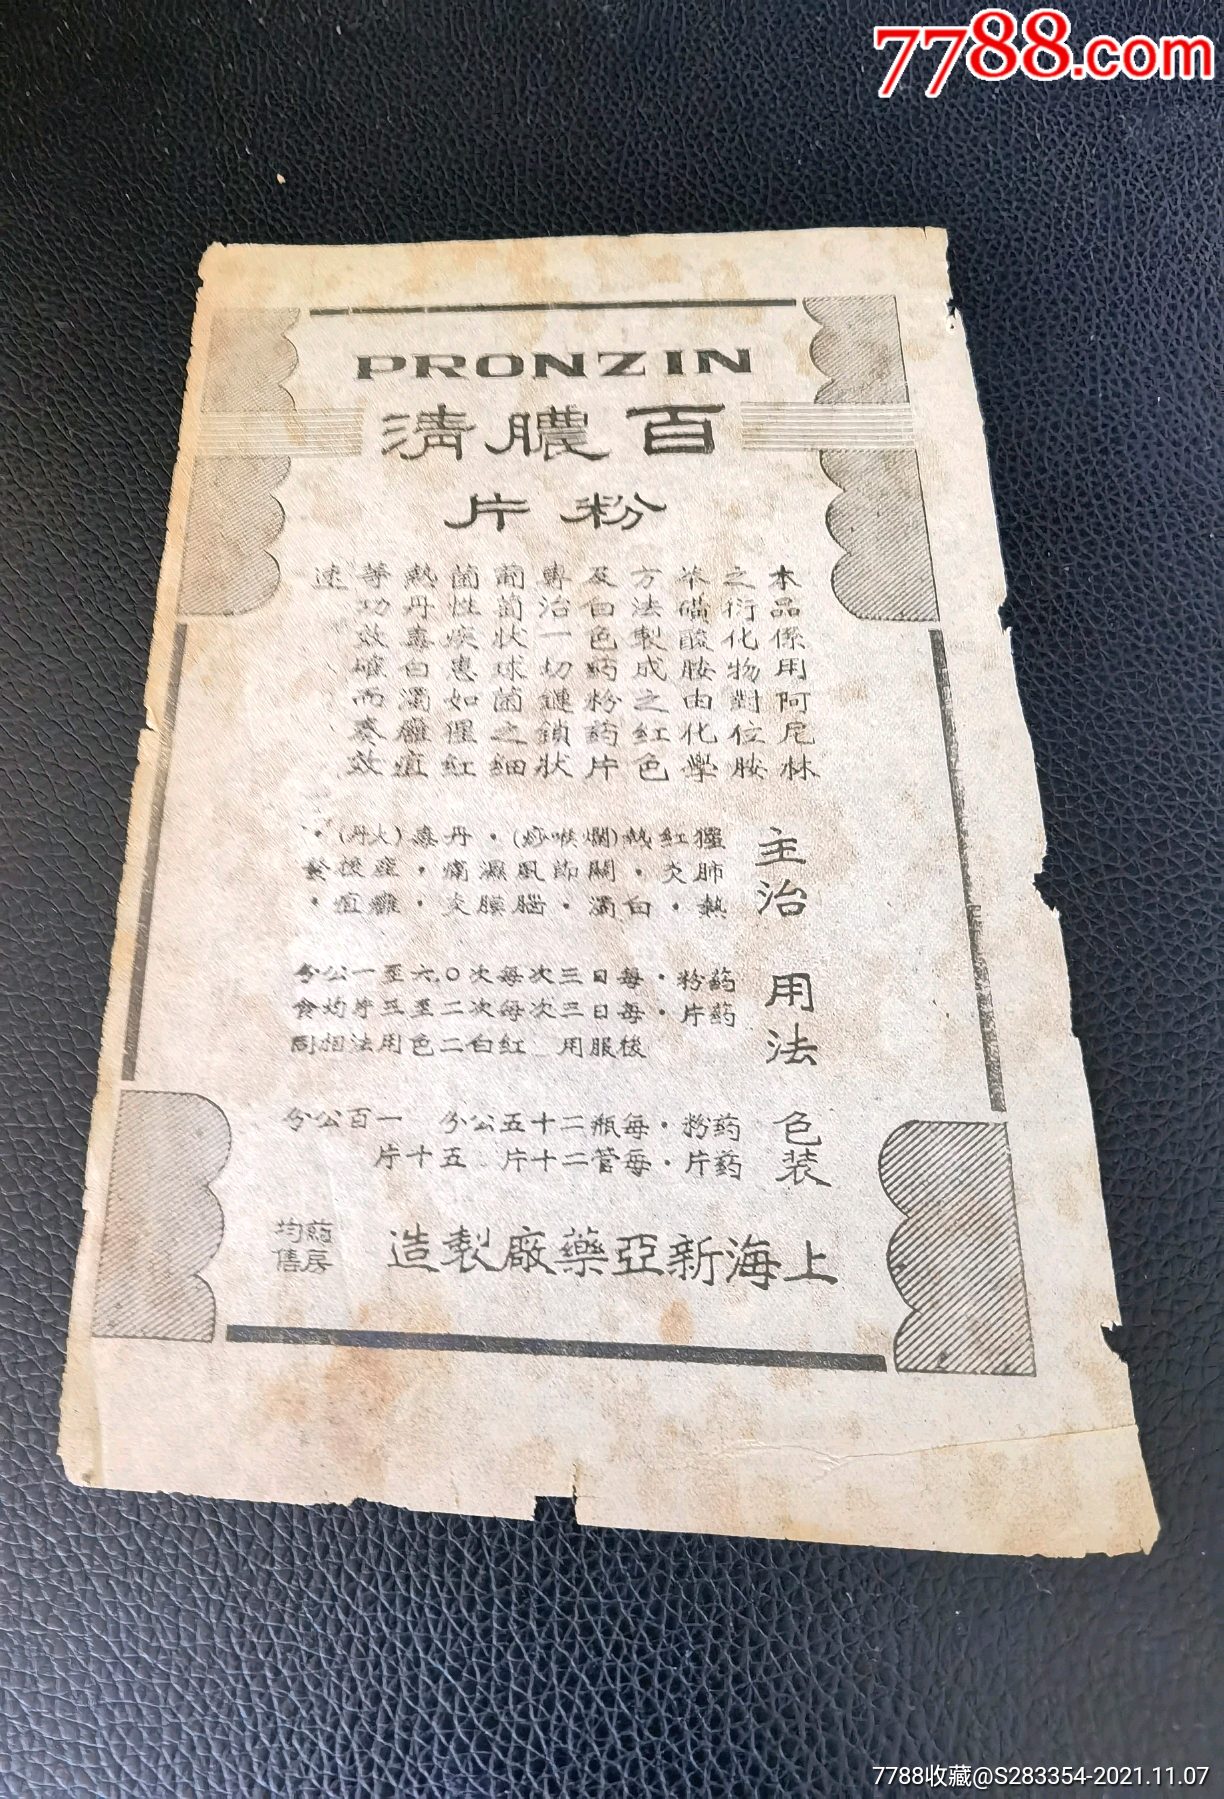 7788.com
PRONZIN
百膿清
粉片
本品係用阿尼林
之衍化物對位胺
苯磺酸胺由化學
方法製成之紅色
及白色药粉药片
專治一切鏈鎖狀
葡萄狀球菌之細
菌性疾患如猩紅
熱丹毒白濁癰疽
等功效確而奏效
速
主治
猩紅熱(爛喉痧)・丹毒(火丹)・
肺炎・關節風濕痛・產後發
熱・白濁・腦膜炎・癰疽・
用法
药粉・每日三次每次〇六至一公分
药片・每日三次每次二至三片均食
後服用 紅白二色用法相同
色装
药粉・每瓶二十五公分 一百公分
药片・每管二十片 五十片
上海新亞藥廠製造
药房均售
7788收藏@S283354-2021.11.07